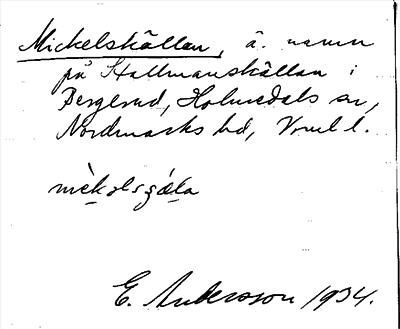 Mickelskällan, ä. namn
på Stallmanskällan i
Bergerud, Holmedals sn,
Nordmarks hd, Vrml l.
mèkəlsɟǽla
E. Andersson 1934.